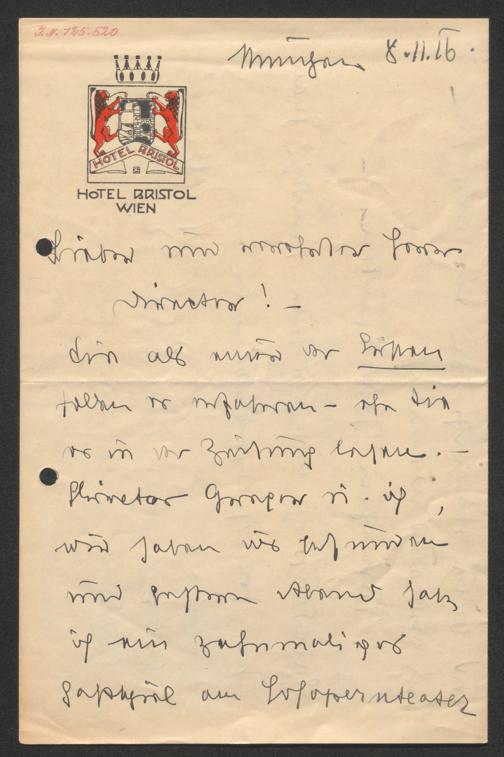 I.N. 125.520
München 8.11.16.
HOTEL BRISTOL
HOTEL BRISTOL
WIEN
Lieber und verehrter Herr
Director! –
Sie als einer der Ersten
sollen es erfahren – ehe Sie
es in der Zeitung lesen. –
Director u. ich,
wir haben uns gefunden
und gestern Abend hab
ich ein zehnmaliges
Gastspiel am Hofoperntheater